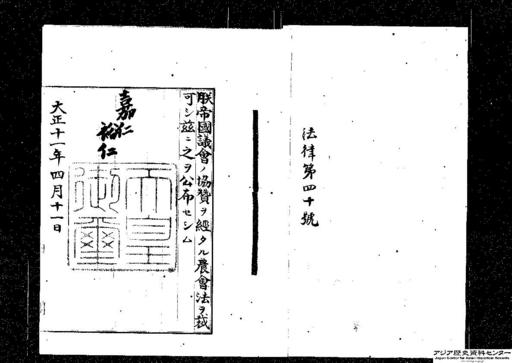 法律第四十號
朕帝國議會ノ協贊ヲ經タル農會法ヲ裁
可シ茲ニ之ヲ公布セシム
嘉仁
裕仁
天皇
御璽
大正十一年四月十一日
アジア歴史資料センター
Japan Center for Asian Historical Records